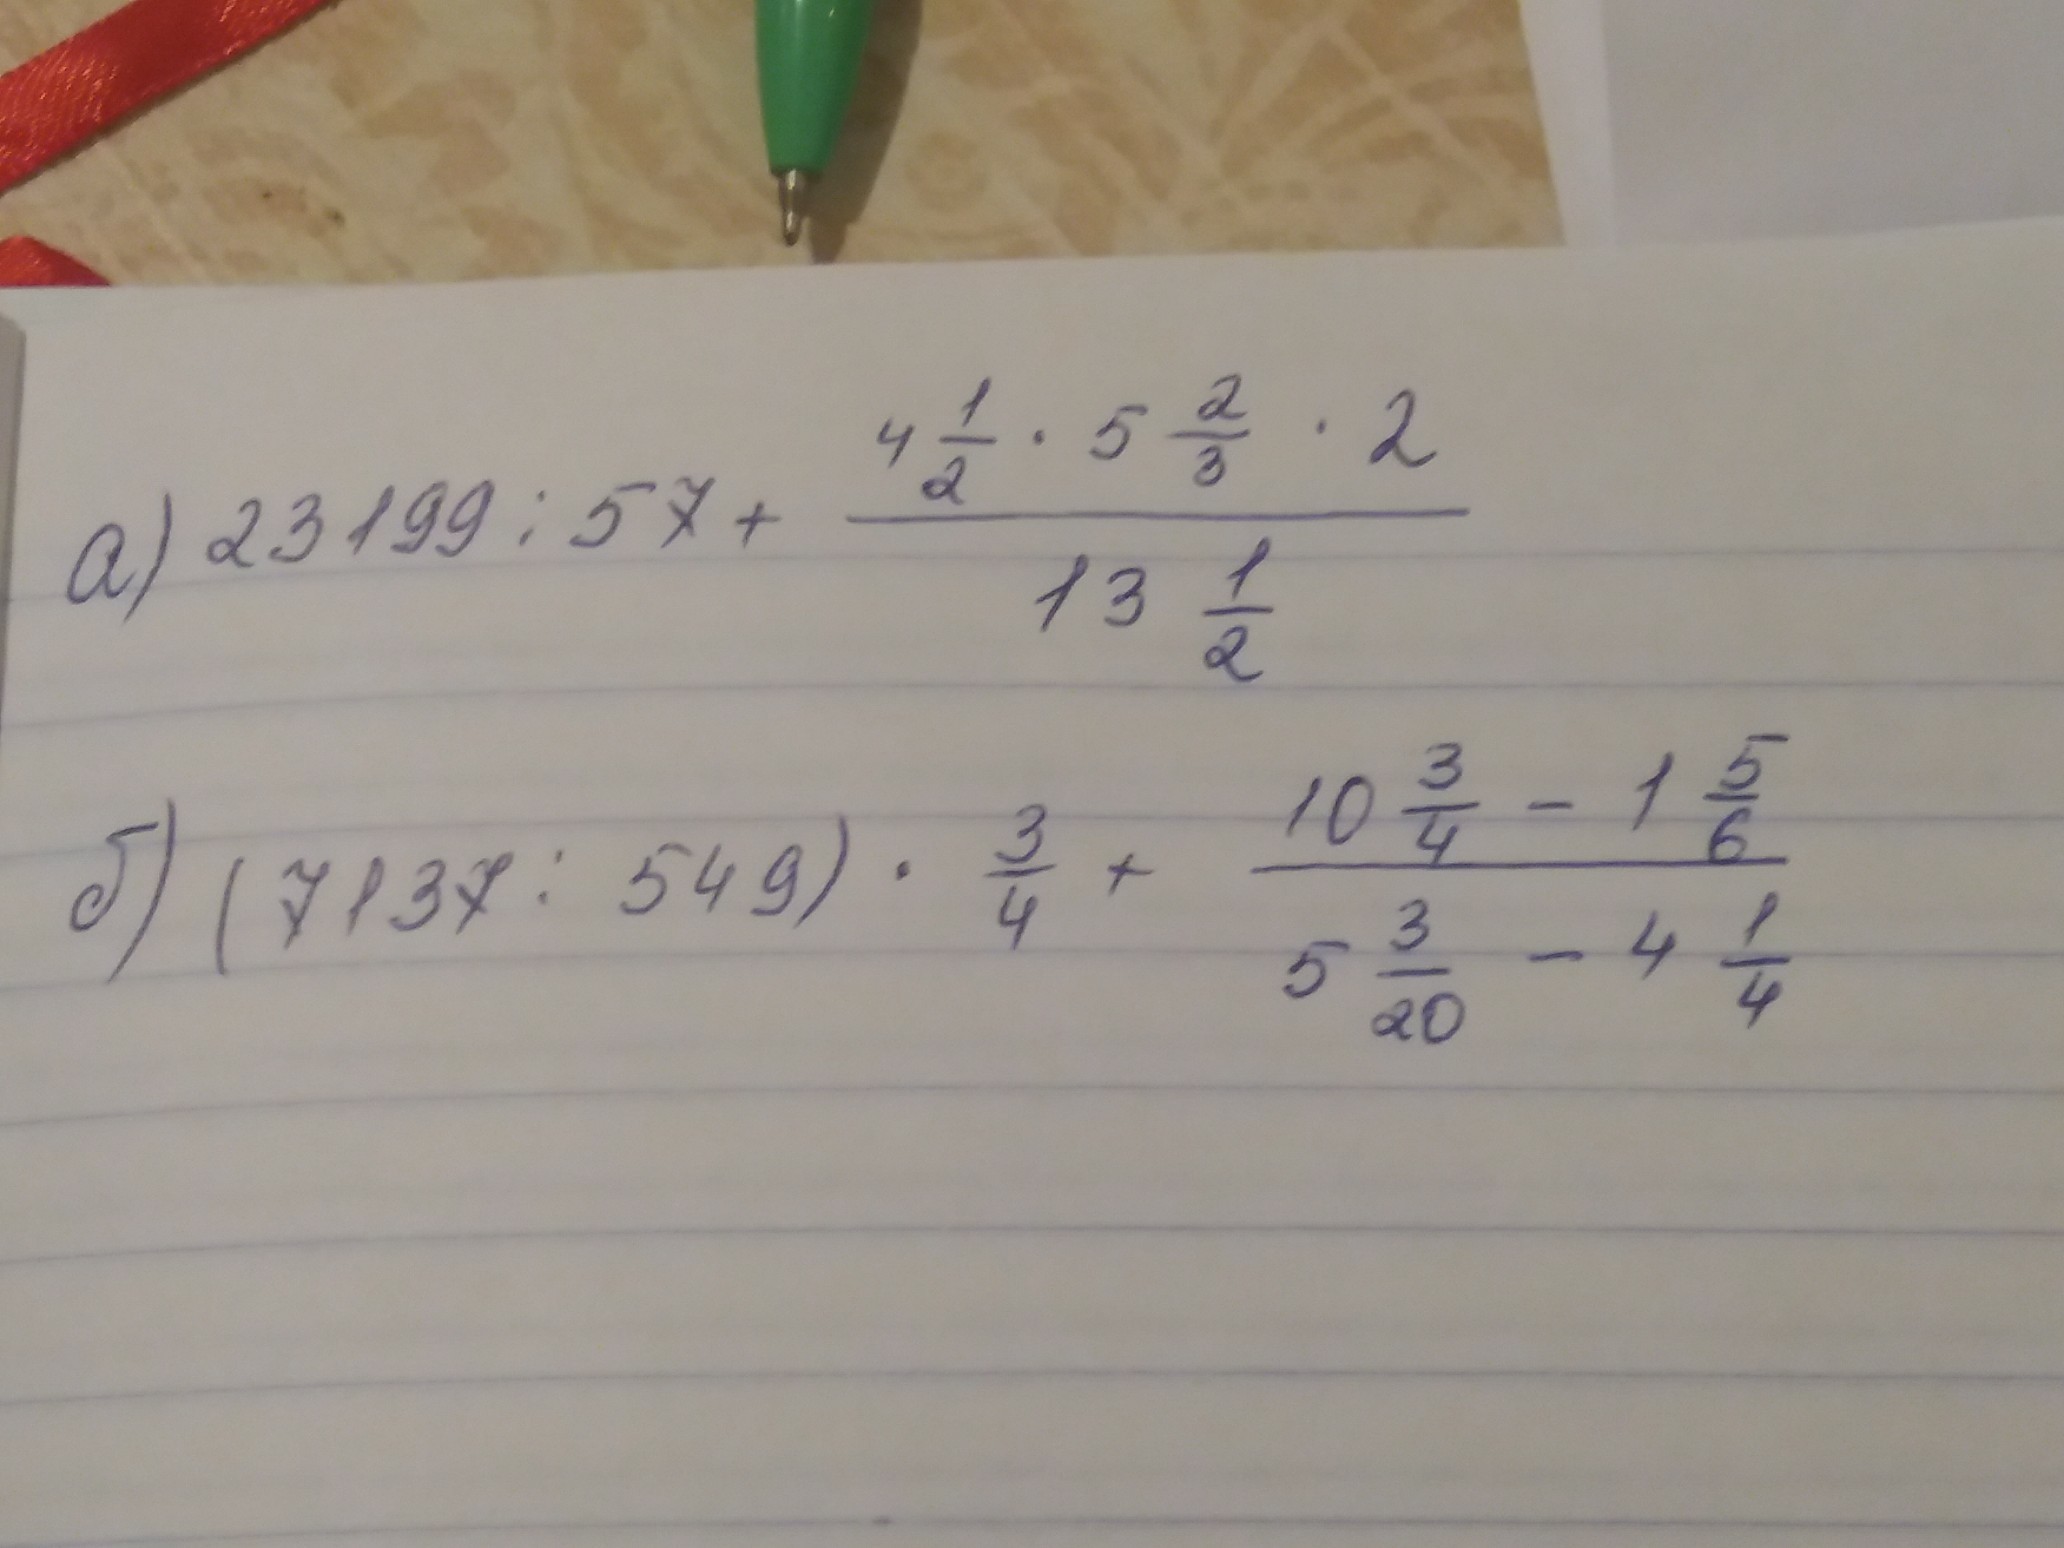 а) 23199 : 57 + (4 1/2 · 5 2/3 · 2) / (13 1/2)
б) (7137 : 549) · 3/4 + (10 3/4 - 1 5/6) / (5 3/20 - 4 1/4)